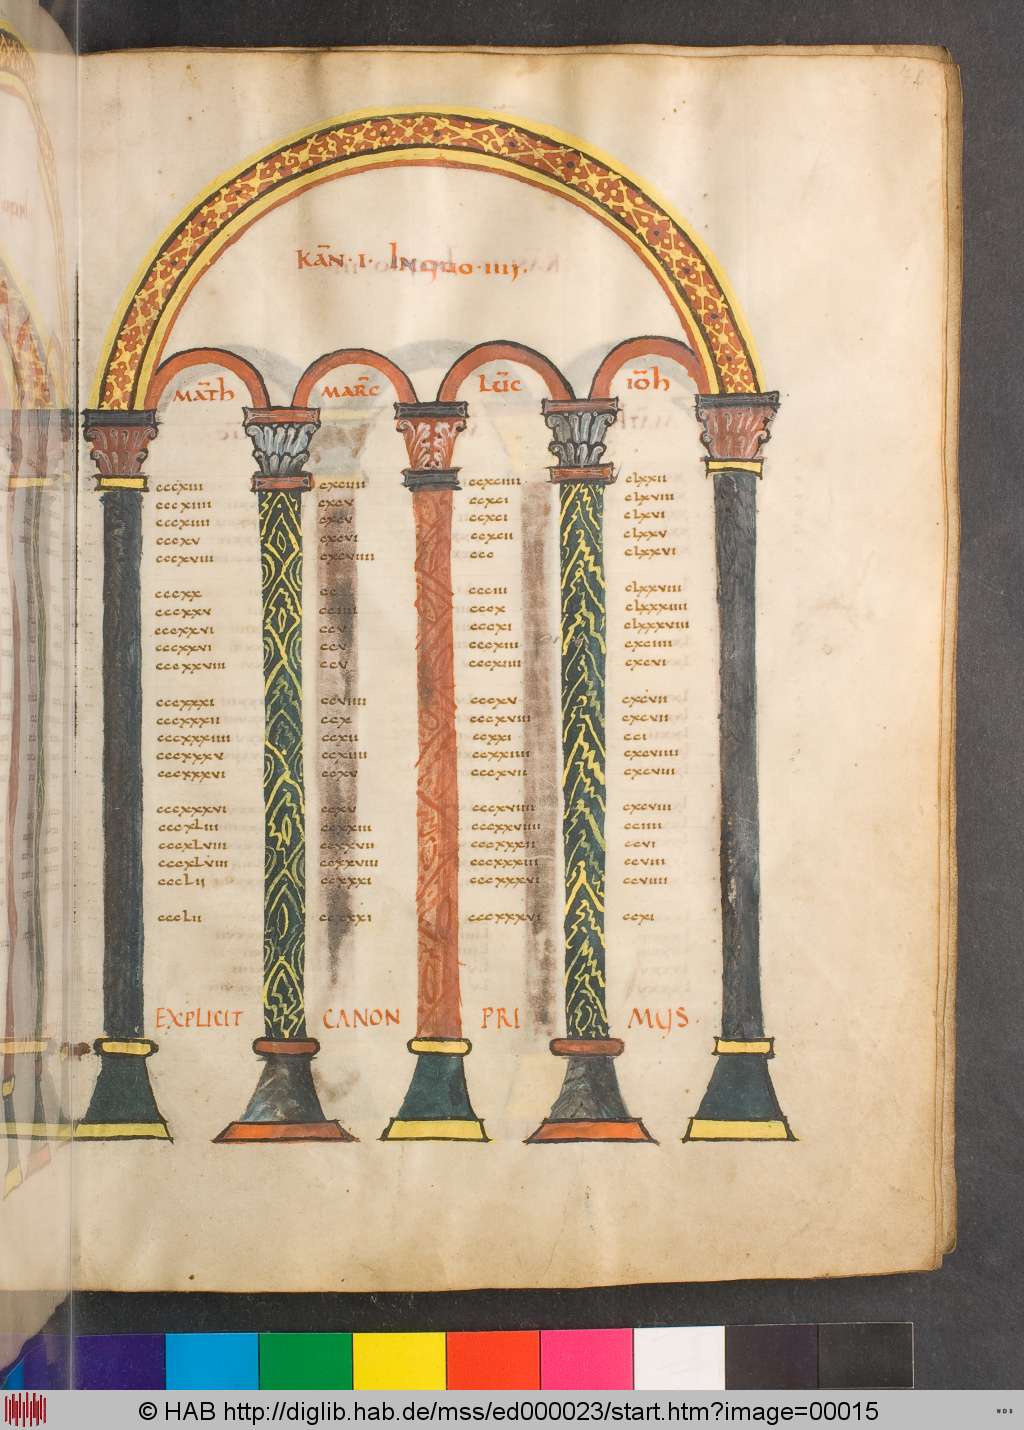 KAN̄ · I · INQUO · IIIJ .
MAT̄H MAR̄C LUC̄ IOH̄
cccxiii cxciiii ccxciiii clxxii
cccxiiii cxcv ccxci clxviii
cccxiiii cxcv ccxci clxvi
cccxv cxcvi ccxcii clxxv
cccxviii cxcviiii ccc clxxvi
cccxx cc ccciii clxxviii
cccxxv cciiii cccx clxxxiiii
cccxxvi ccv cccxi clxxxviii
cccxxvi ccv cccxiii cxciiii
cccxxviii ccv cccxiiii cxcvi
cccxxxi ccviiii cccxv cxcvii
cccxxxii ccx cccxviii cxcvii
cccxxxiiii ccxii ccxxi cci
cccxxxv ccxiiii ccxxiiii cxcviiii
cccxxxvi ccxv cccxvii cxcviii
cccxxxvi ccxv cccxviiii cxcviii
cccxLiii ccxxiiii cccxxviiii cciiii
cccxLviii ccxxvii cccxxxii ccvi
cccxLviii ccxxviii cccxxxiii ccviii
cccLii ccxxxi cccxxxvi ccviiii
cccLii ccxxxi cccxxxvi ccxi
EXPLICIT CANON PRI MUS .
© HAB http://diglib.hab.de/mss/ed000023/start.htm?image=00015
WDB